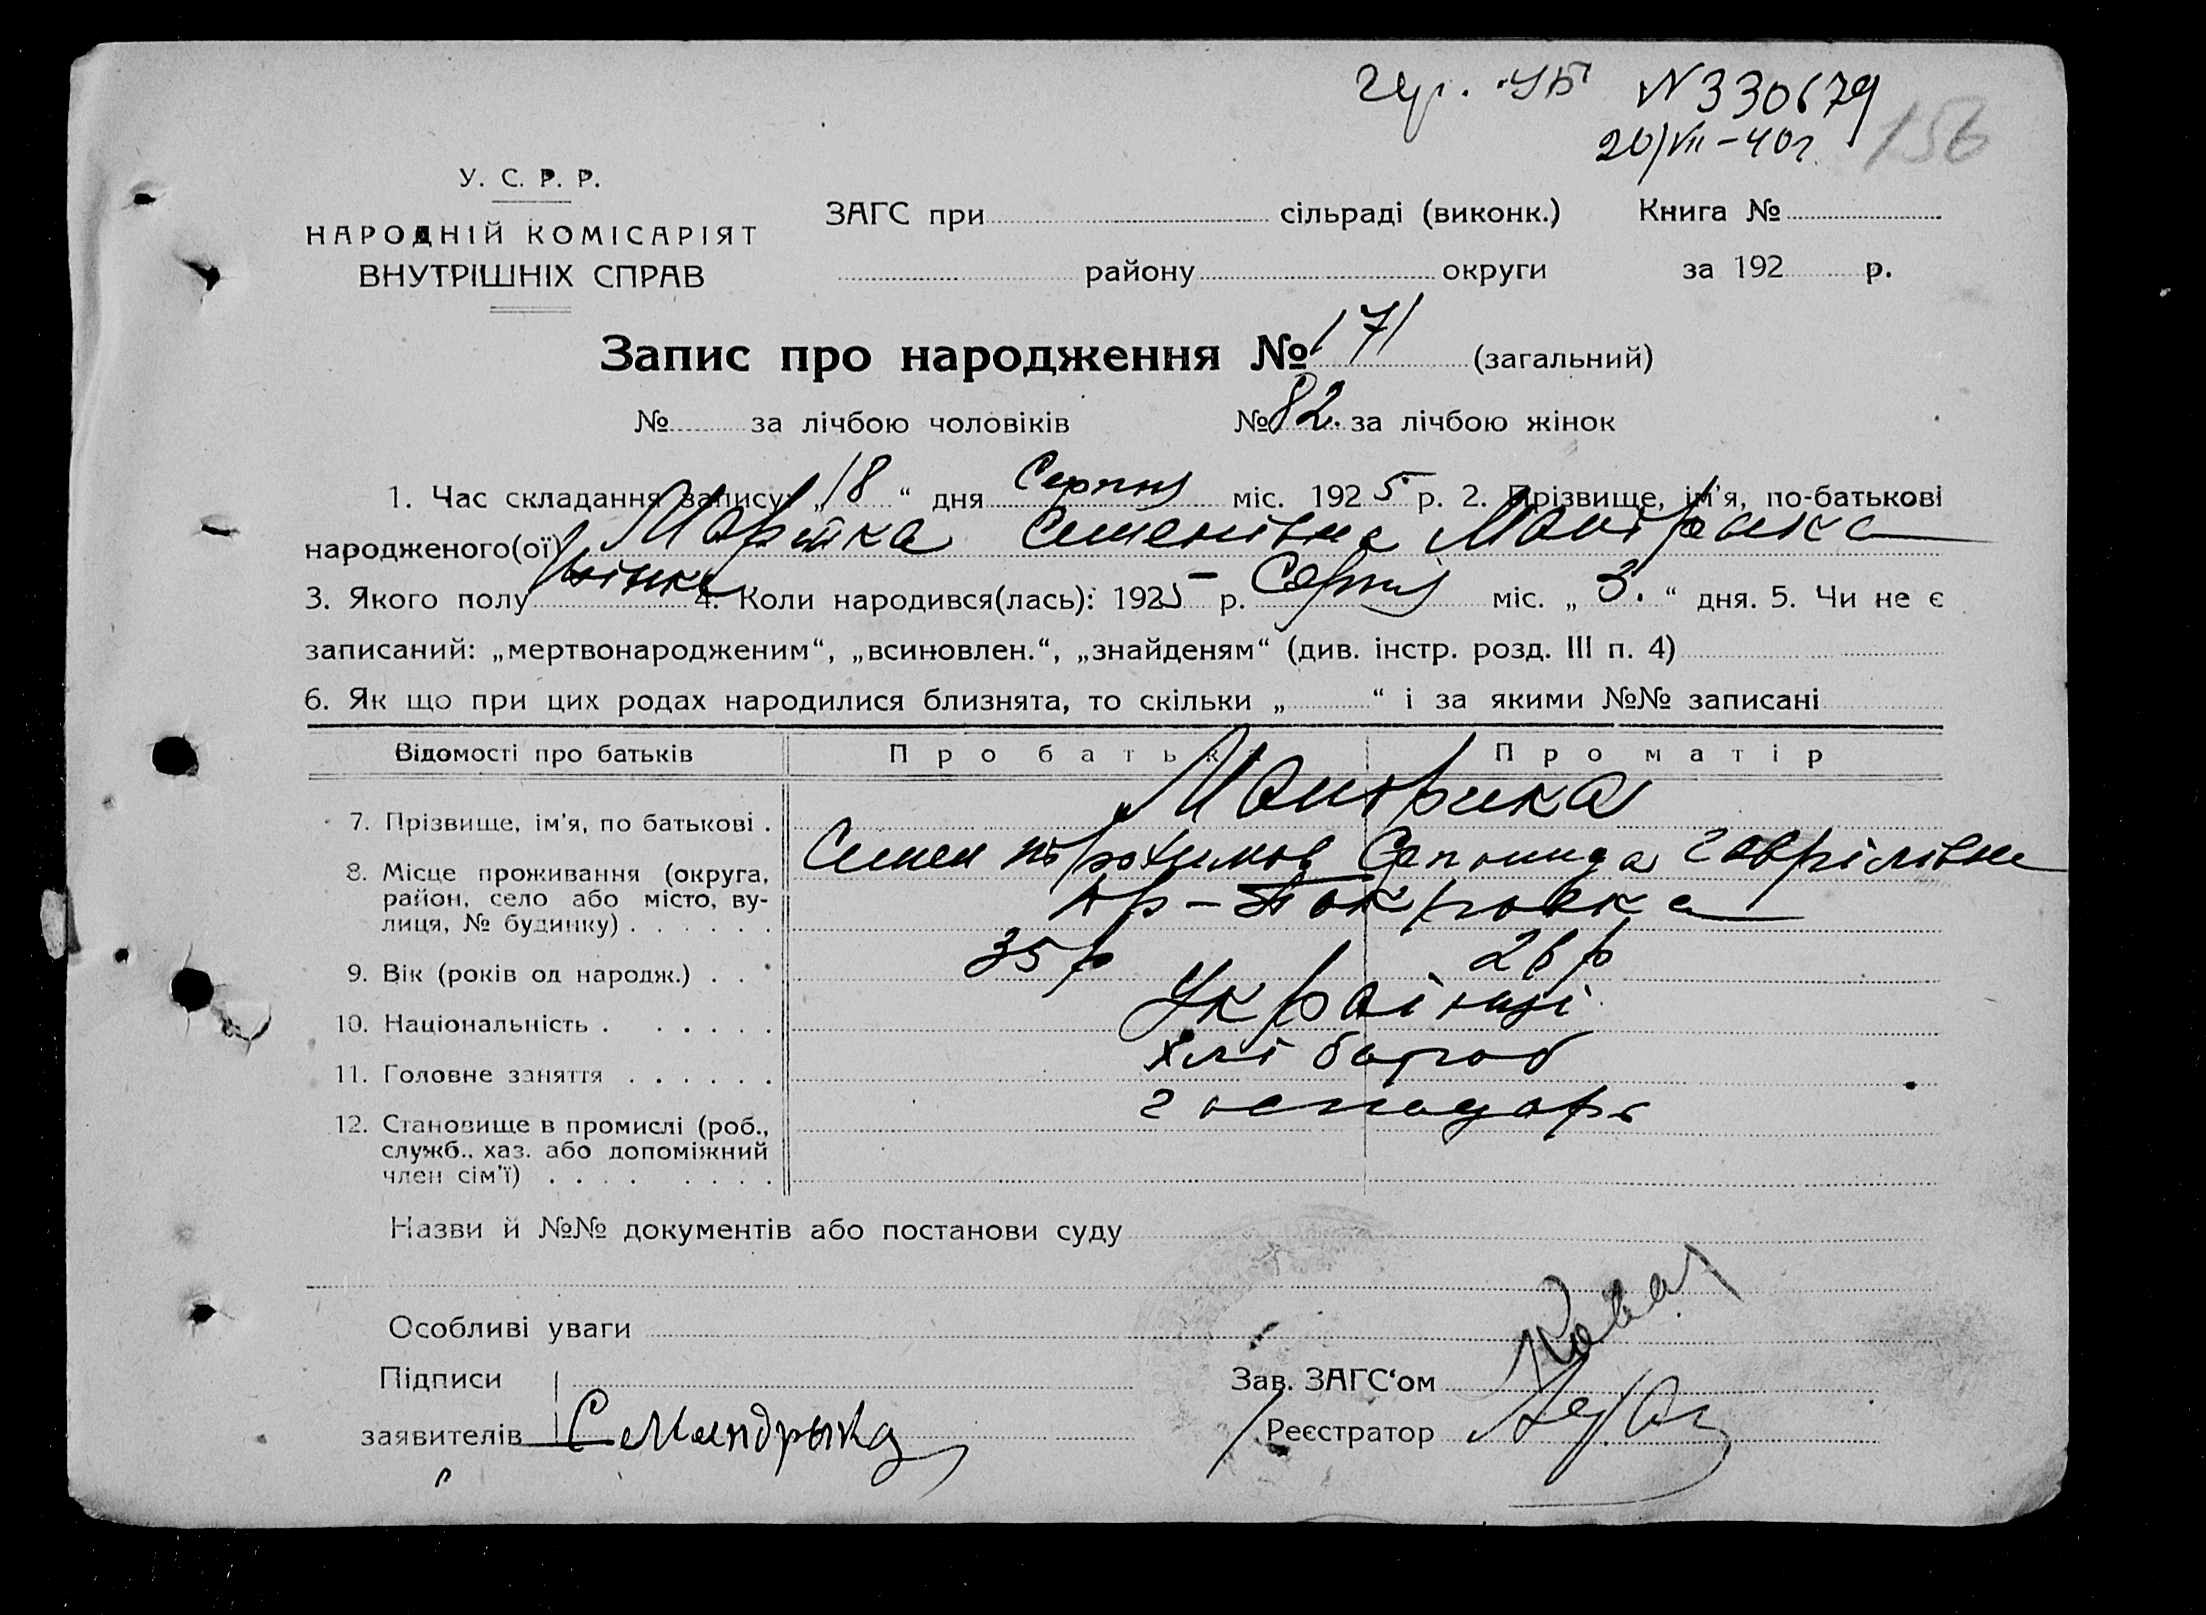 гр. УБ N 330679
20/VII – 40 г. 156
У. С. Р. Р.
НАРОДНІЙ КОМІСАРІЯТ
ВНУТРІШНІХ СПРАВ
ЗАГС при сільраді (виконк.) Книга №
району округи за 192 р.
Запис про народження № 171 (загальний)
№ за лічбою чоловіків № 82. за лічбою жінок
1. Час складання запису: „18“ дня Серпня міс. 1925 р. 2. Прізвище, ім'я, по-батькові
народженого(ої) Марійка Семенівна
3. Якого полу жінка 4. Коли народився(лась): 1925 р. Серпня міс. „3.“ дня. 5. Чи не є
записаний: „мертвонародженим“, „всиновлен.“, „знайденям“ (див. інстр. розд. III п. 4)
6. Як що при цих родах народилися близнята, то скільки „ “ і за якими №№ записані
Відомості про батьків Про батьк Про матір
7. Прізвище, ім'я, по батькові .
Семен Гаврілівна
8. Місце проживання (округа,
район, село або місто, ву-
лиця, № будинку) . . . . . . Покровка
9. Вік (років од народж.) . . . 35 р 26 р
10. Національність . . . . . . Українці
11. Головне заняття . . . . . . хлібороб
12. Становище в промислі (роб.,
служб., хаз. або допоміжний
член сім'ї) . . . . . . . . господарь
Назви й №№ документів або постанови суду
Особливі уваги
Підписи Зав. ЗАГС'ом Ковал
заявителів С Мандрыка Реєстратор